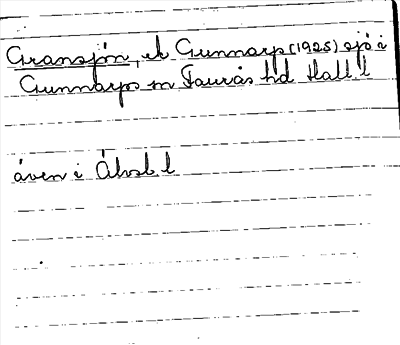 Gransjön, ek Gunnarp (1925) sjö i
Gunnarps sn Faurås hd Hall l
även i Älvsb l